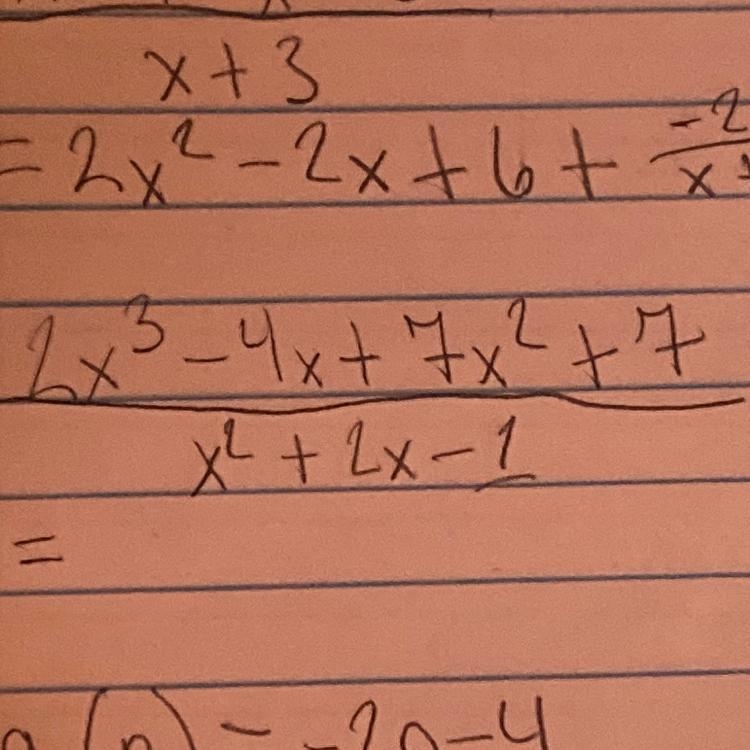 x + 3
= 2x² - 2x + 6 + -2/x
2x³ - 4x + 7x² + 7
x² + 2x - 1
=
(n) = -2n - 4